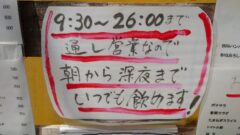 9:30～26:00まで
通し営業なので
朝から深夜まで
いつでも飲めます!